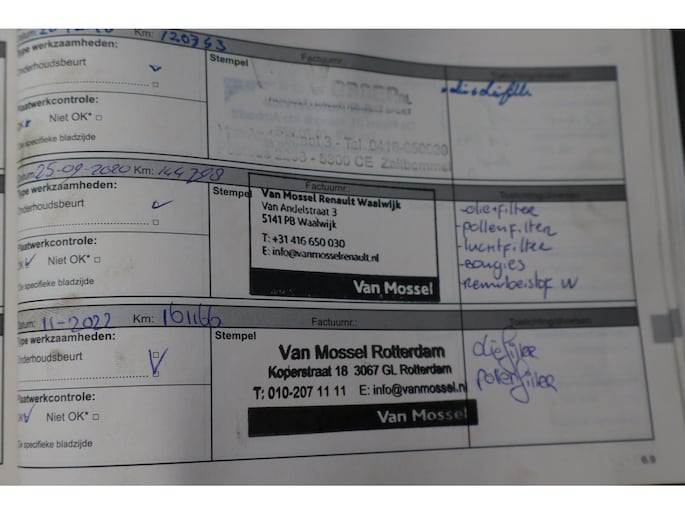 Km: 120743
Type werkzaamheden:
Onderhoudsbeurt
Plaatwerkcontrole:
OK Niet OK* □
Zie specifieke bladzijde
Stempel
Factuurnr.:
Toelichting/diversen:
oliefilter
Tel. 0416-650030
5300 CE Zaltbommel
Datum: 25-09-2020 Km: 144798
Type werkzaamheden:
Onderhoudsbeurt
Plaatwerkcontrole:
OK Niet OK* □
Zie specifieke bladzijde
Stempel
Factuurnr.:
Van Mossel Renault Waalwijk
Van Andelstraat 3
5141 PB Waalwijk
T: +31 416 650 030
E: info@vanmosselrenault.nl
Van Mossel
Toelichting/diversen:
-oliefilter
-pollenfilter
-luchtfilter
-bougies
-remvloeistof VV
Datum: 11-2022 Km: 161166
Type werkzaamheden:
Onderhoudsbeurt
Plaatwerkcontrole:
OK Niet OK* □
Zie specifieke bladzijde
Stempel
Factuurnr.:
Van Mossel Rotterdam
Koperstraat 18 3067 GL Rotterdam
T: 010-207 11 11 E: info@vanmossel.nl
Van Mossel
Toelichting/diversen:
oliefilter
pollenfilter
6.9